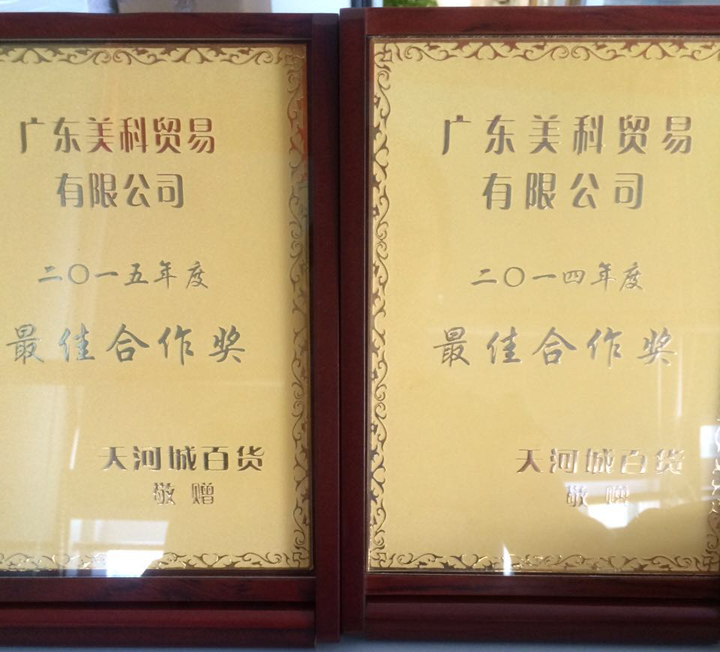 广东美科贸易
有限公司
二〇一五年度
最佳合作奖
天河城百货
敬赠
广东美科贸易
有限公司
二〇一四年度
最佳合作奖
天河城百货
敬赠